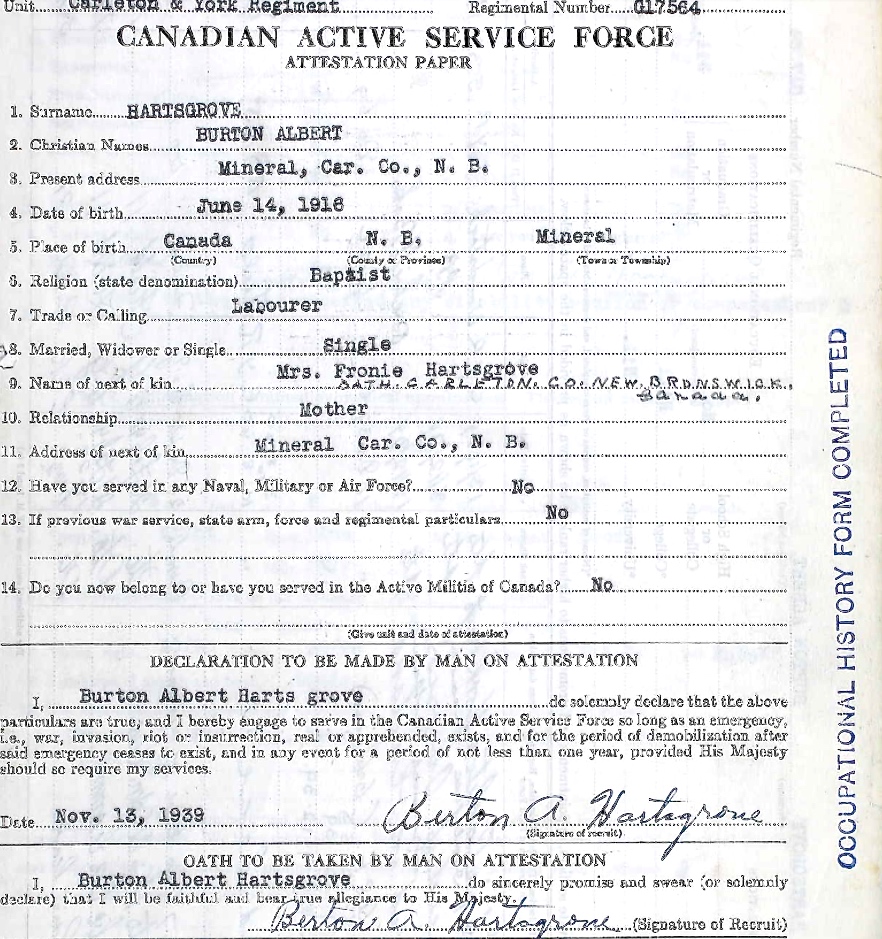 Unit Carleton & York Regiment Regimental Number G17564
CANADIAN ACTIVE SERVICE FORCE
ATTESTATION PAPER
1. Surname HARTSGROVE
2. Christian Names BURTON ALBERT
3. Present address Mineral, Car. Co., N. B.
4. Date of birth June 14, 1918
5. Place of birth Canada N. B. Mineral
(Country) (County or Province) (Town or Township)
6. Religion (state denomination) Baptist
7. Trade or Calling Labourer
8. Married, Widower or Single Single
9. Name of next of kin Mrs. Fronie Hartsgrove
BATH. CARLETON. CO. NEW. BRUNSWICK.,
Canada.
10. Relationship Mother
11. Address of next of kin Mineral Car. Co., N. B.
12. Have you served in any Naval, Military or Air Force? No
13. If previous war service, state arm, force and regimental particulars No
14. Do you now belong to or have you served in the Active Militia of Canada? No
(Give unit and date of attestation)
DECLARATION TO BE MADE BY MAN ON ATTESTATION
I, Burton Albert Harts grove do solemnly declare that the above
particulars are true, and I hereby engage to serve in the Canadian Active Service Force so long as an emergency,
i.e., war, invasion, riot or insurrection, real or apprehended, exists, and for the period of demobilization after
said emergency ceases to exist, and in any event for a period of not less than one year, provided His Majesty
should so require my services.
Date Nov. 13, 1939 Berton A. Hartsgrove
(Signature of recruit)
OATH TO BE TAKEN BY MAN ON ATTESTATION
I, Burton Albert Hartsgrove do sincerely promise and swear (or solemnly
declare) that I will be faithful and bear true allegiance to His Majesty.
Berton A. Hartsgrove (Signature of Recruit)
OCCUPATIONAL HISTORY FORM COMPLETED